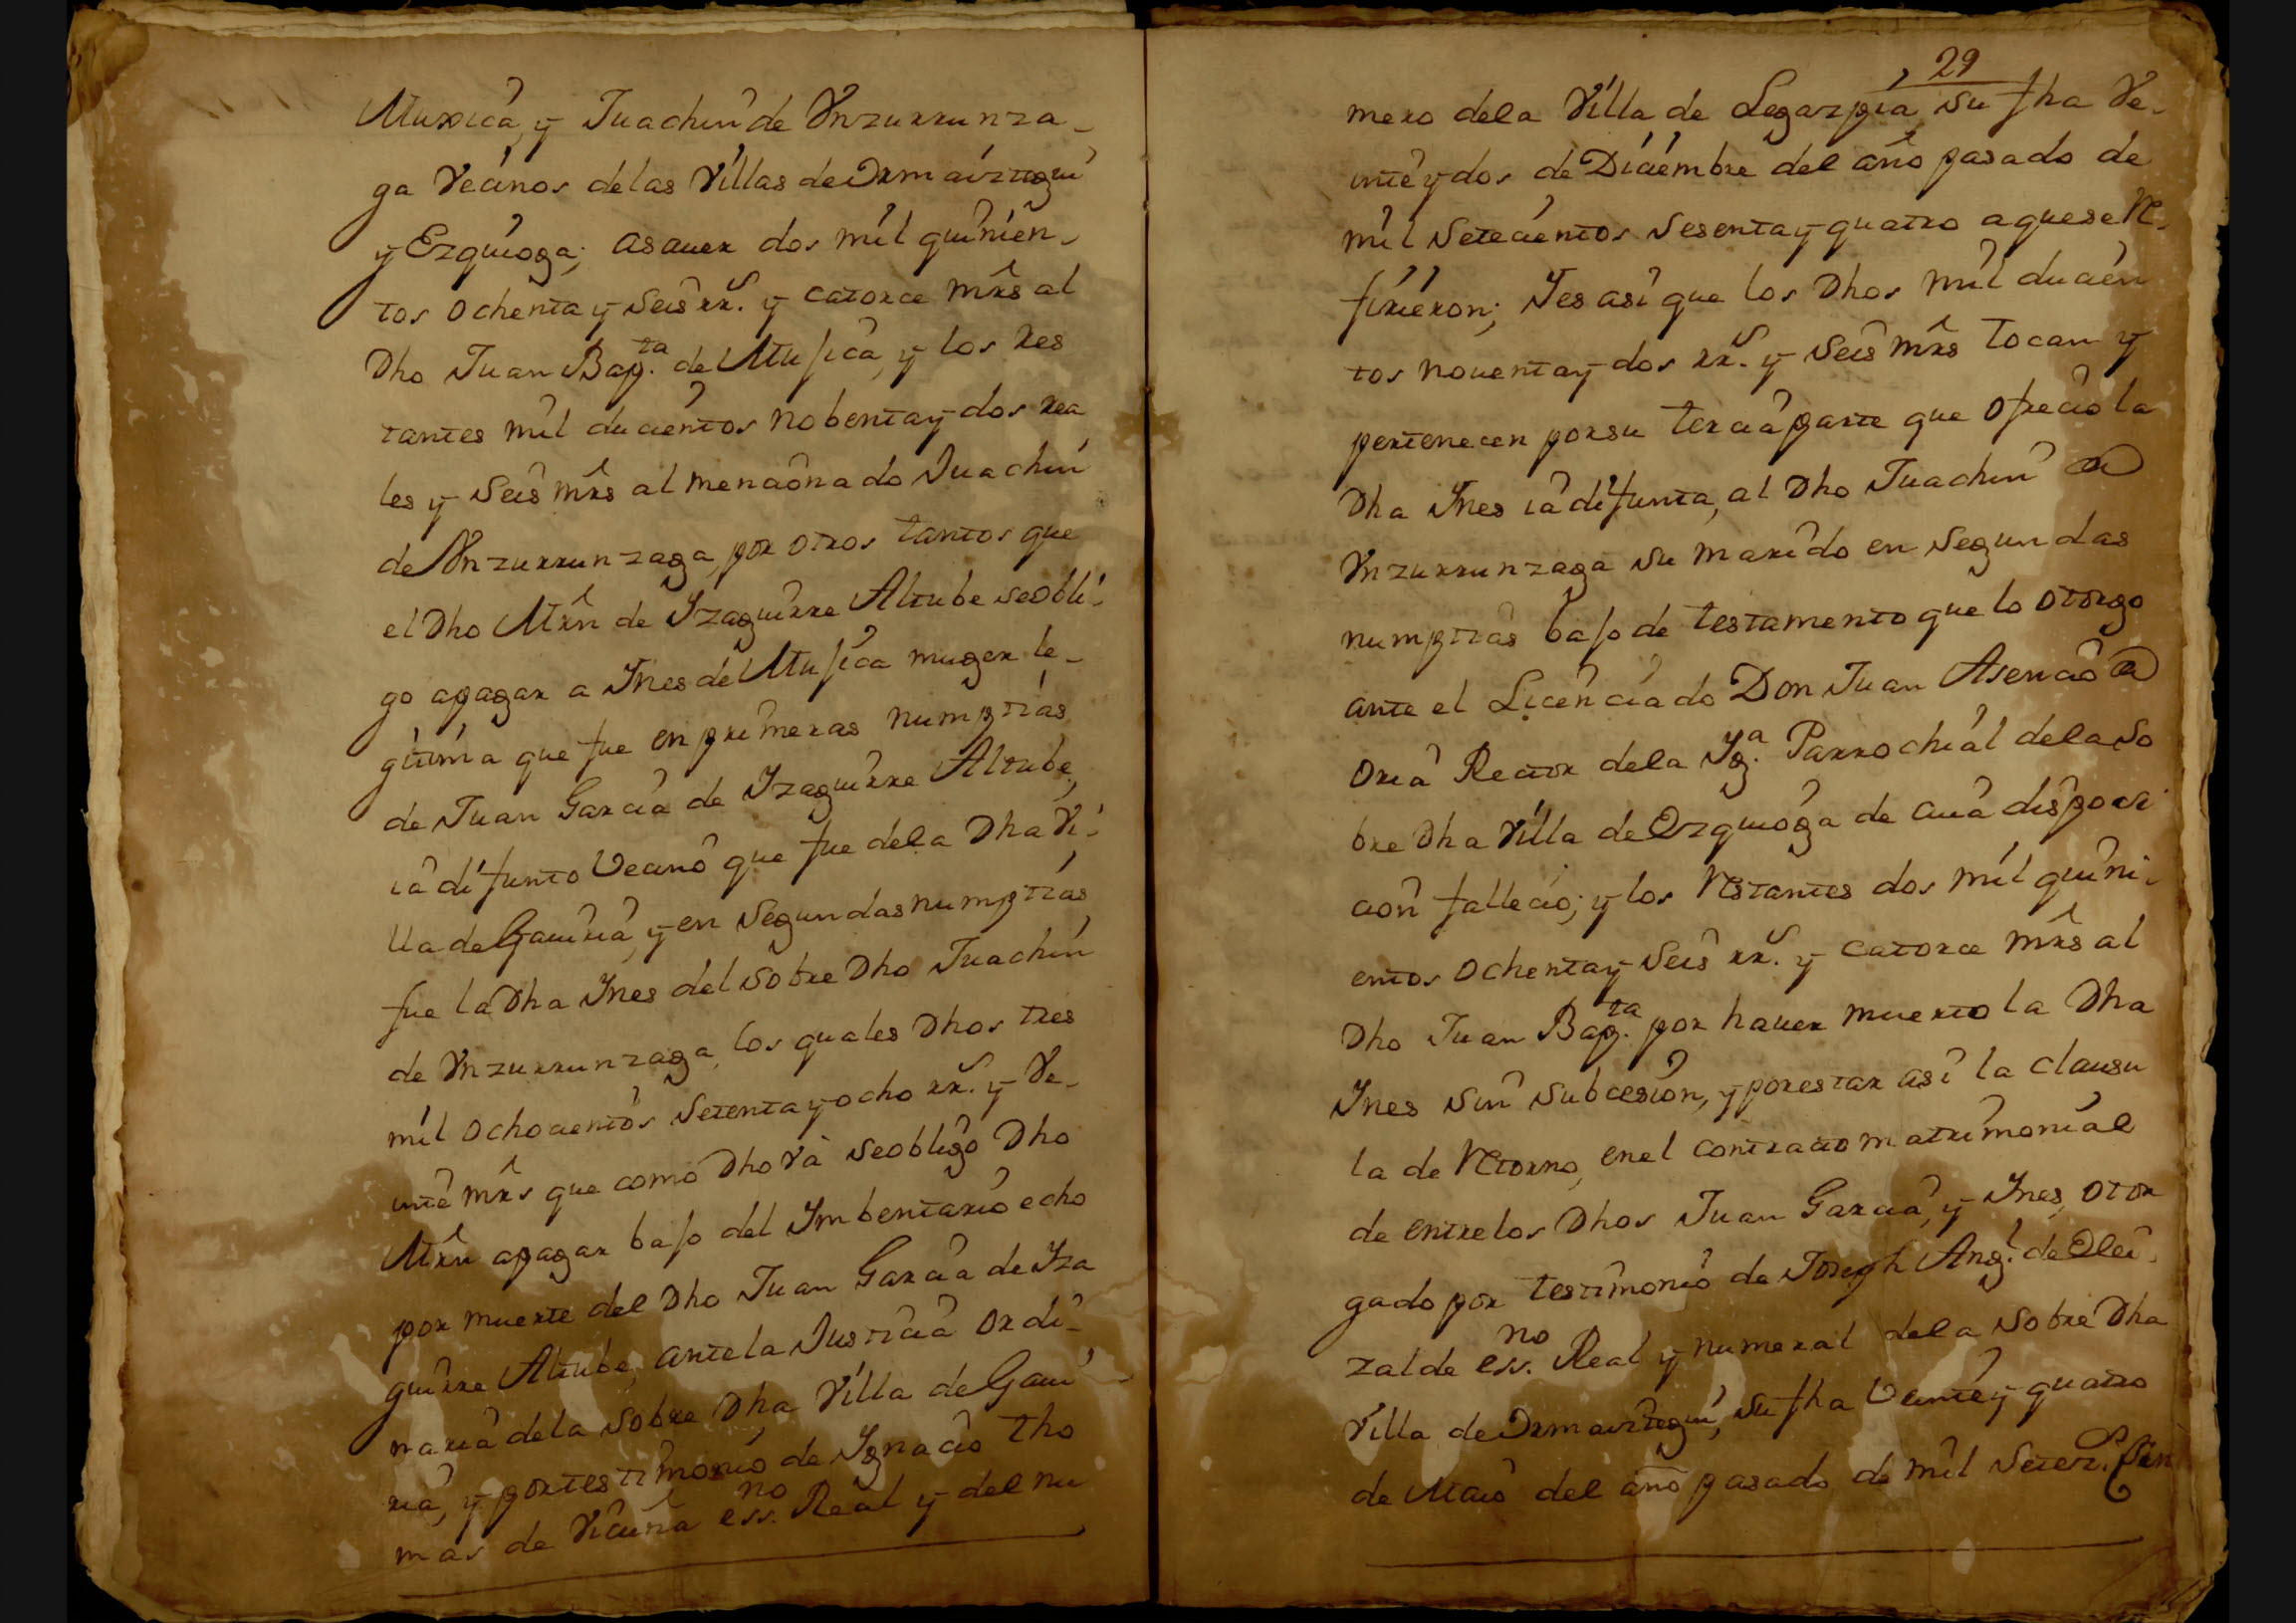 Muxica, y Juachin de Ynzurrunza-
ga Vecinos de las Villas de Ormaiztegui
y Ezquioga; asauer dos mil quinien-
tos ochenta y seis rrs. y catorce mrs al
Dho Juan Bapta. de Mujica, y los res
tantes mil ducientos nobenta y dos rea
les y seis mrs al mencionado Juachin
de Ynzurrunzaga, por otros tantos que
el Dho Mrn de Yzaguirre Altube se obli-
go apagar a Ynes de Mujica muger le-
gitima que fue en primeras numptias
de Juan Garcia de Yzaguirre Altube,
ia difunto Vecino que fue dela Dha Vi-
lla de Gauiria, y en segundas numptias
fue la Dha Ynes del sobre Dho Juachin
de Ynzurrunzaga, los quales Dhos tres
mil ochocientos setenta y ocho rrs. y Ve-
inte mrs que como Dho Và se obligo Dho
Mrn apagar bajo del Ymbentario echo
por muerte del Dho Juan Garcia de Yza
guirre Altube, ante la Justicia ordi-
naria dela sobre Dha Villa de Gaui
ria, y por testimonio de Ygnacio Tho
mas de Vicuña essno. Real y del nu
29
mero dela Villa de Legazpia su fha Ve-
inte y dos de Diciembre del año pasado de
mil setecientos sesenta y quatro a que se re-
firieron; Y es asi que los Dhos mil ducien
tos nouenta y dos rrs. y seis mrs tocan y
pertenecen por su tercia parte que ofrecio la
Dha Ynes ia difunta, al Dho Juachin de
Ynzurrunzaga su marido en segundas
numptias bajo de testamento que lo otorgo
ante el Licenciado Don Juan Asencio de
Oria Rector dela Yga. Parrochial dela so
bre Dha Villa de Ezquioga de cuia disposi
cion fallecio; y los restantes dos mil quini-
entos ochenta y seis rrs. y catorce mrs al
Dho Juan Bapta. por hauer muerto la Dha
Ynes sin subcesion, y por estar asi la clausu
la de retorno, en el contrato matrimonial
de entre los Dhos Juan Garcia, y Ynes, otor
gado por testimonio de Joseph Angl. de Elei-
zalde essno. Real y numeral dela sobre Dha
Villa de Ormaiztegui, su fha Veinte y quatro
de Maio del año pasado de mil setezs.